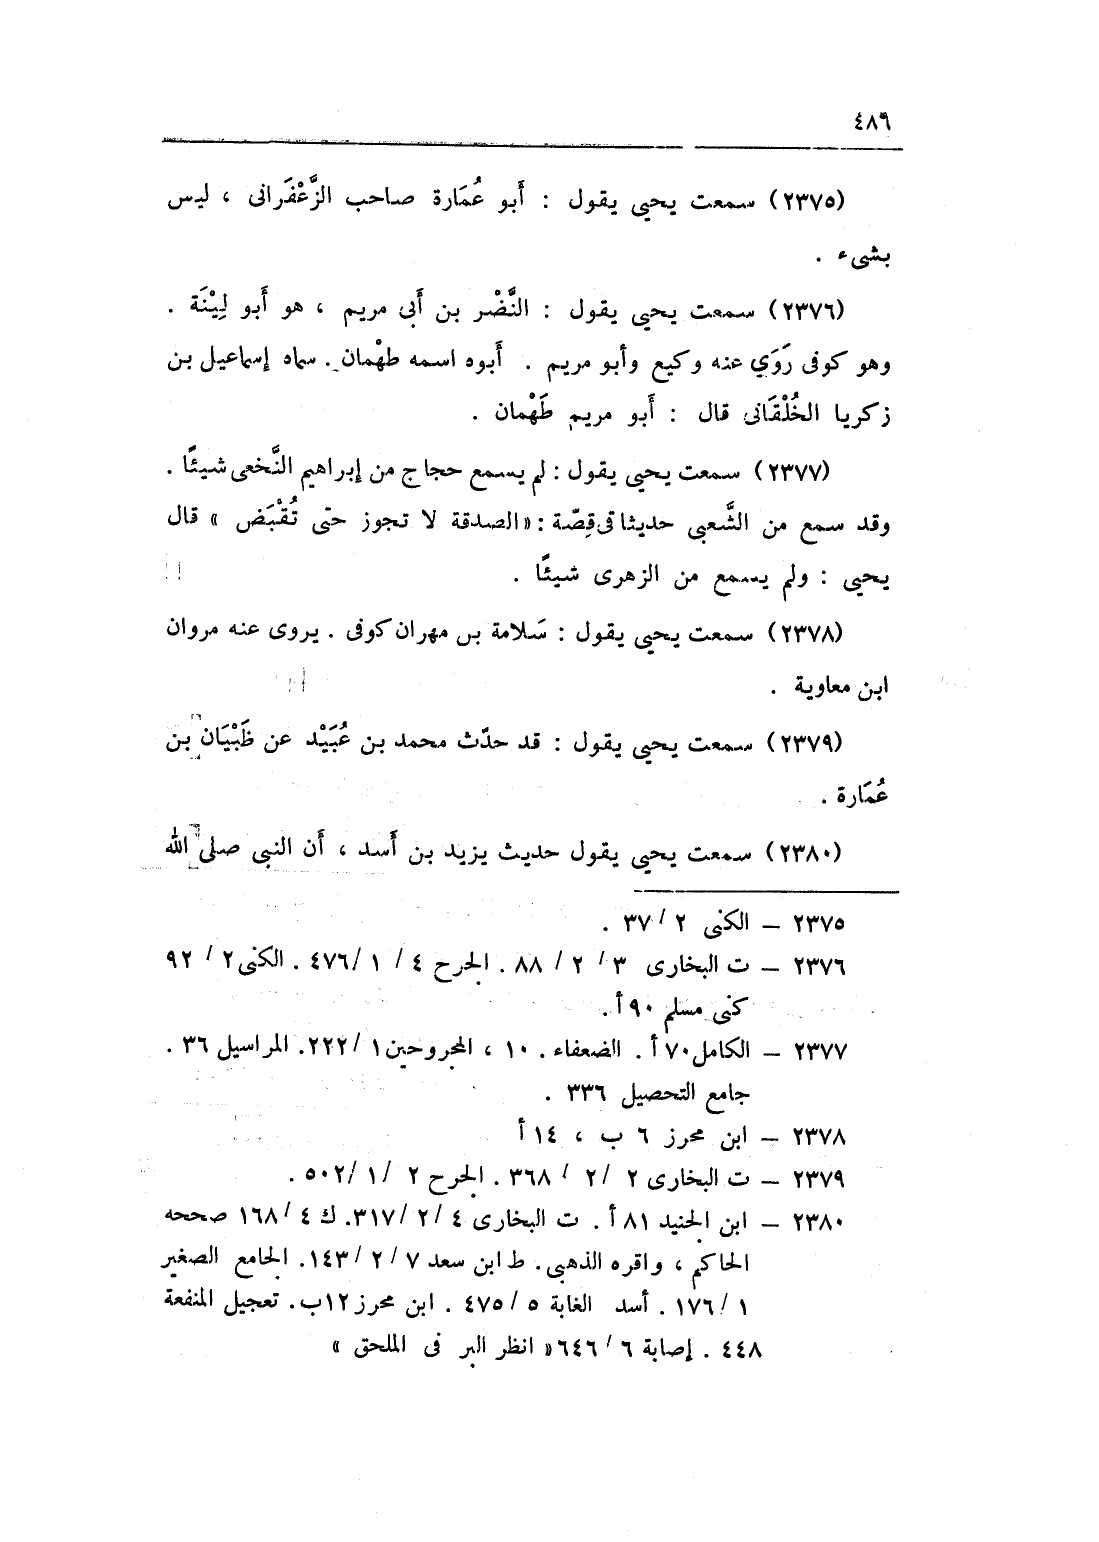 ٤٨٦
(٢٣٧٥) سمعت يحيى يقول : أَبو عُمَارة صاحب الزَّعْفَرانى ، ليس
بشىء .
(٢٣٧٦) سمعت يحيى يقول : النَّضْر بن أَبى مريم ، هو أَبو لِيْنَة .
وهو كوفى رَوَي عنه وكيع وأبو مريم . أَبوه اسمه طهْمان . سماه إسماعيل بن
زكريا الخُلْقَانى قال : أَبو مريم طَهْمان .
(٢٣٧٧) سمعت يحيى يقول : لم يسمع حجاج من إبراهيم النَّخعى شيئًا .
وقد سمع من الشَّعبى حديثا فى قِصّة : « الصدقة لا تجوز حتى تُقْبَض » قال
يحيى : ولم يسمع من الزهرى شيئًا .
(٢٣٧٨) سمعت يحيى يقول : سَلامة بن مهران كوفى . يروى عنه مروان
ابن معاوية .
(٢٣٧٩) سمعت يحيى يقول : قد حدّث محمد بن عُبَيْد عن ظَبْيَان بن
عُمَارة .
(٢٣٨٠) سمعت يحيى يقول حديث يزيد بن أَسد ، أَن النبى صلى الله
٢٣٧٥ – الكنى ٢ / ٣٧ .
٢٣٧٦ – ت البخارى ٣ / ٢ / ٨٨ . الجرح ٤ / ١ /٤٧٦ . الكنى ٢ / ٩٢
كنى مسلم ٩٠ أ .
٢٣٧٧ – الكامل ٧٠ أ . الضعفاء . ١٠ ، المجروحين ١ /٢٢٢. المراسيل ٣٦ .
جامع التحصيل ٣٣٦ .
٢٣٧٨ – ابن محرز ٦ ب ، ١٤ أ
٢٣٧٩ – ت البخارى ٢ /٢ / ٣٦٨ . الجرح ٢ /١ /٥٠٢ .
٢٣٨٠ – ابن الجنيد ٨١ أ . ت البخارى ٤ /٢ /٣١٧. ك ٤ /١٦٨ صححه
الحاكم ، واقره الذهبى . ط ابن سعد ٧ / ٢ /١٤٣. الجامع الصغير
١ /١٧٦ . أسد الغابة ٥ /٤٧٥ . ابن محرز ١٢ب . تعجيل المنفعة
٤٤٨ . إصابة ٦ /٦٤٦« انظر البر فى الملحق »